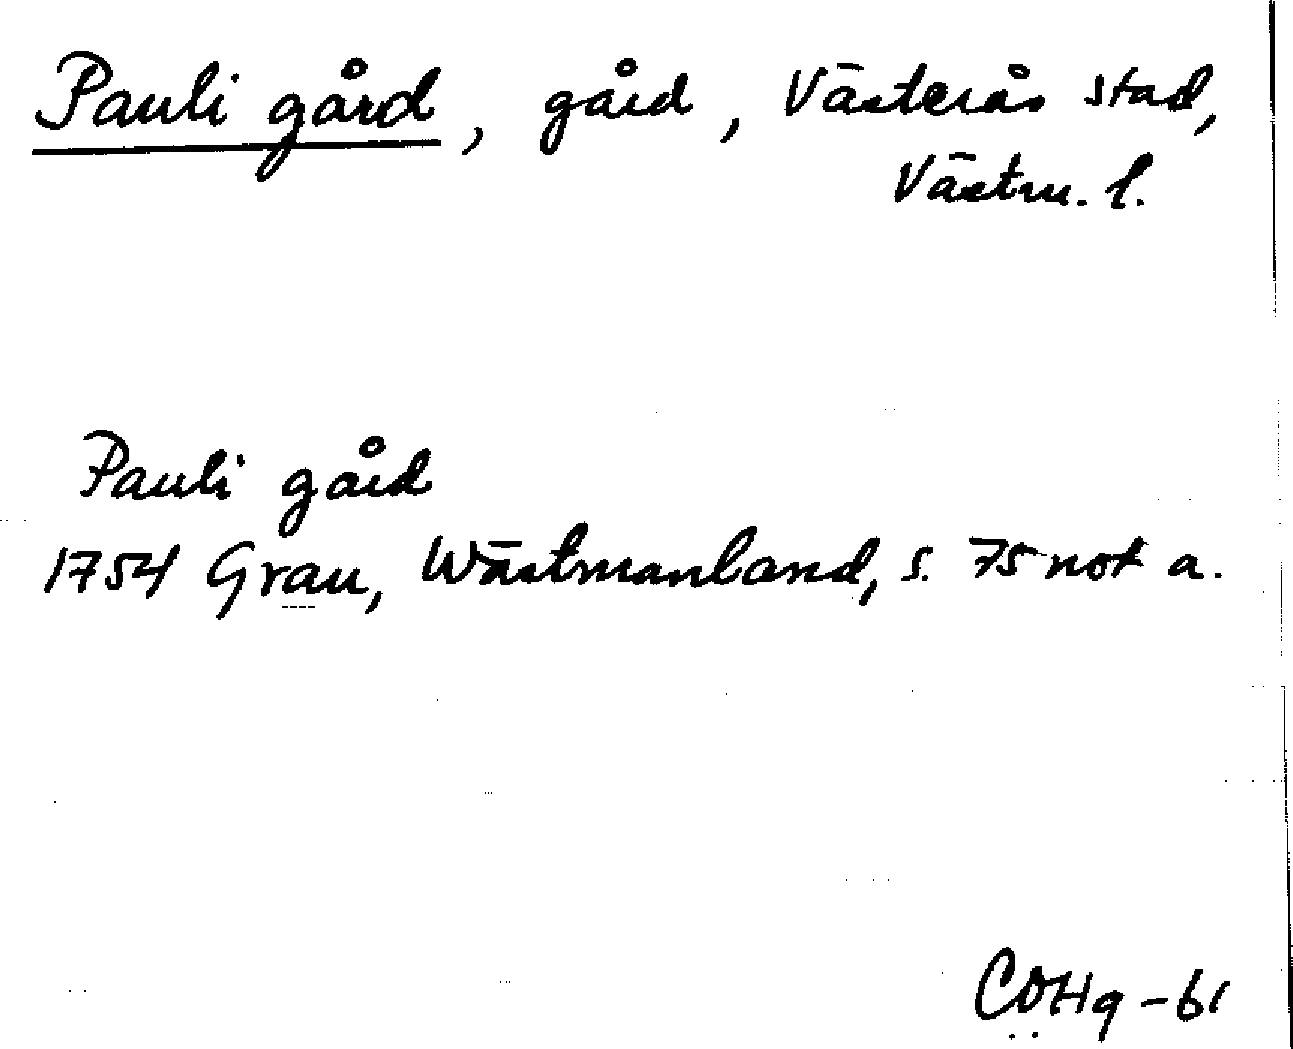 Pauli gård, gård, Västerås stad,
Västm. l.
Pauli gård
1754 Grau, Wästmanland, s. 75 not a.
COHg -61